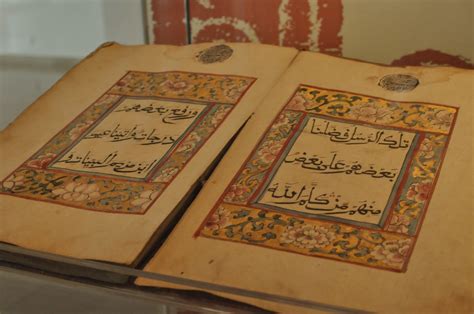 تلك الرسل فضلنا
بعضهم على بعض
منهم من كلم الله
ورفع بعضهم
درجات واتينا عيسى
ابن مريم البينات و